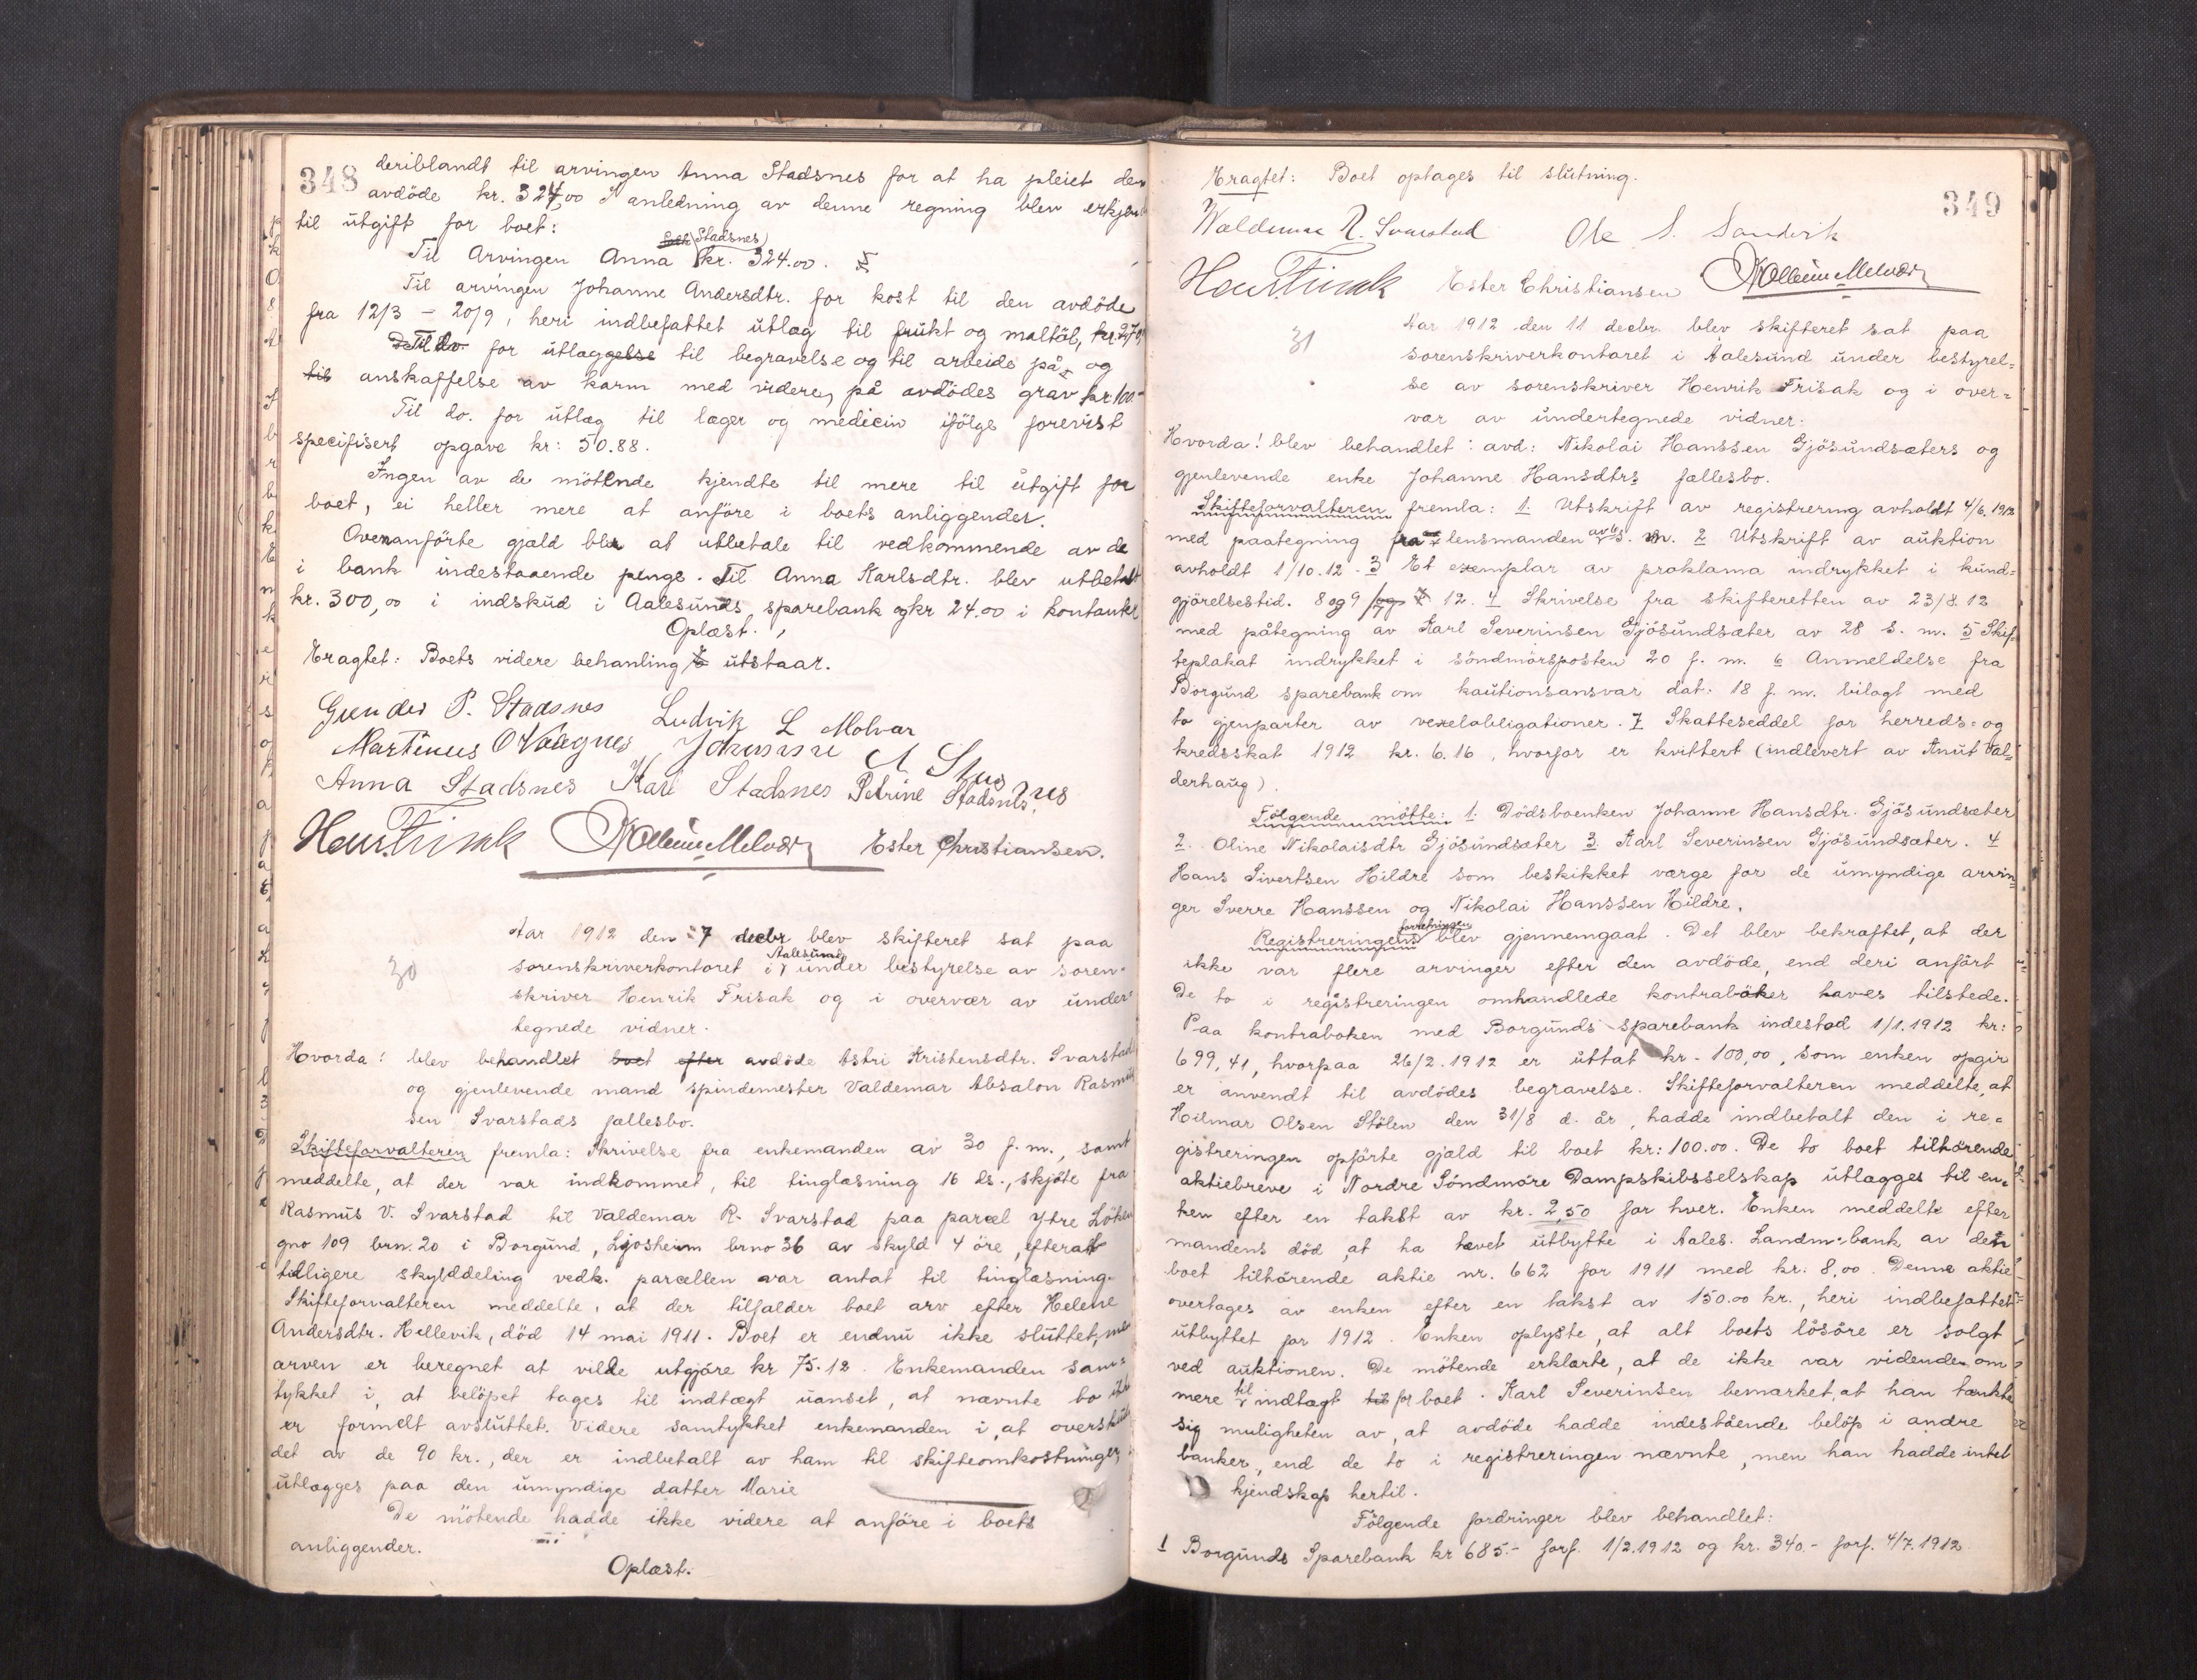 348
deriblandt til arvingen Anna Stadsnes for at ha pleiet den
avdöde kr. 324,00 I anledning av denne regning blev erkjendt
til utgift for boet:
Til Arvingen Anna (Stadsnes) kr. 324.00.
Til arvingen Johanne Andersdtr. for kost til den avdöde
fra 12/3 - 20/9, heri indbefattet utlæg til frukt og maltöl,
Til do. for utlæggelse til begravelse og til arbeide på og
til anskaffelse av karm med videre, på avdödes grav kr 100-
Til do. for utlæg til læger og medicin ifölge forevist
specifisert opgave kr: 50.88.
Ingen av de mötende kjendte til mere til utgift for
boet, ei heller mere at anföre i boets anliggender.
Ovenanförte gjæld blev at utbetale til vedkommende av de
i bank indestaaende penge. Til Anna Karlsdtr. blev utbetalt
kr. 300,00 i indskud i Aalesunds sparebank og kr 24.00 i kontanter
Oplæst.
Eragtet: Boets videre behanling utstaar.
Gunder P. Stadsnes Ludvik L Molvær
Martinus O Vaagnes Johanne A
Anna Stadsnes Kari Stadsnes Petrine Stadsnes
Ester Christiansen.
30
Aar 1912 den 7 decbr blev skifteret sat paa
sorenskriverkontoret i Aalesund under bestyrelse av soren-
skriver Henrik Frisak og i overvær av under-
tegnede vidner.
Hvorda! blev behandlet boet efter avdöde Astri Kristensdtr. Svarstad
og gjenlevende mand spindemester Valdemar Absalon Rasmus
sen Svarstads fællesbo.
Skifteforvalteren fremla: Skrivelse fra enkemanden av 30 f. m., samt
meddelte, at der var indkommet, til tinglæsning 16 ds., skjöte fra
Rasmus V. Svarstad til Valdemar R. Svarstad paa parcel Ytre Löken
gno 109 brn. 20 i Borgund, Ljosheim brno 36 av skyld 4 öre, efterat
tidligere skylddeling vedk. parcellen var antat til tinglæsning.
Skifteforvalteren meddelte, at der tilfalder boet arv efter Helene
Andersdtr. Hellevik, död 14 mai 1911. Boet er endnu ikke sluttet, men
arven er beregnet at vilde utgjöre kr 75.12. Enkemanden sam-
tykket i, at belöpet tages til indtægt uanset, at nævnte bo ikke
er formelt avsluttet. Videre samtykket enkemanden i, at overskud
det av de 90 kr., der er indbetalt av ham til skifteomkostninger,
utlægges paa den umyndige datter Marie
De mötende hadde ikke videre at anföre i boets
anliggender.
Oplæst.
349
Eragtet: Boet optages til slutning.
Waldemar R. Svarstad Ole S. Sandvik
Ester Christiansen
31
Aar 1912 den 11 decbr. blev skifteret sat paa
sorenskriverkontoret i Aalesund under bestyrel=
se av sorenskriver Henrik Frisak og i over=
vær av undertegnede vidner:
Hvorda! blev behandlet: avd: Nikolai Hanssen Gjösundsæters og
gjenlevende enke Johanne Hansdtrs fællesbo.
Skifteforvalteren fremla: 1. Utskrift av registrering avholdt 4/6. 1912
med paategning fra lensmanden av s. m. 2 Utskrift av auktion
avholdt 1/10.12. 3 Et exemplar av proklama indrykket i kund=
gjörelsestid. 8 og 9 12. 4 Skrivelse fra skifteretten av 23/8.12
med påtegning av Karl Severinsen Gjösundsæter av 28 s. m. 5 Skif-
teplakat indrykket i söndmörsposten 20 f. m. 6 Anmeldelse fra
Borgund sparebank om kautionsansvar dat: 18 f. m. bilagt med
to gjenparter av vexelobligationer. 7 Skatteseddel for herreds- og
kredsskat 1912 kr. 6.16, hvorfor er kvittert (indlevert av Knut Val-
derhaug).
Fölgende mötte: 1. Dödsboenken Johanne Hansdtr. Gjösundsæter
2. Oline Nikolaisdtr Gjösundsæter 3. Karl Severinsen Gjösundsæter. 4
Hans Sivertsen Hildre som beskikket værge for de umyndige arvin-
ger Sverre Hanssen og Nikolai Hanssen Hildre.
Registreringens forretningen blev gjennemgaat. Det blev bekræftet, at der
ikke var flere arvinger efter den avdöde, end deri anfört
De to i registreringen omhandlede kontraböker haves tilstede.
Paa kontraboken med Borgunds sparebank indestod 1/1.1912 kr:
699,41, hvorpaa 26/2.1912 er uttat kr. 100,00, som enken opgir
er anvendt til avdödes begravelse. Skifteforvalteren meddelte, at
Hilmar Olsen Stölen den 31/8 d. år, hadde indbetalt den i re-
gistreringen opförte gjæld til boet kr: 100.00. De to boet tilhörende
aktiebreve i Nordre Söndmöre Dampskibsselskap utlægges til en-
ken efter en takst av kr. 2,50 for hver. Enken meddelte efter
mandens död, at ha hævet utbytte i Aales. Landm. bank av den
boet tilhörende aktie nr. 662 for 1911 med kr. 8,00. Denne aktie
overtages av enken efter en takst av 150.00 kr., heri indbefattet
utbyttet for 1912. Enken oplyste, at alt boets lösöre er solgt
ved auktionen. De mötende erklærte, at de ikke var vidende om
mere til indtægt for boet. Karl Severinsen bemærket, at han tænkte
sig muligheten av, at avdöde hadde indestående belöp i andre
banker, end de to i registreringen nævnte, men han hadde intet
kjendskap hertil.
Fölgende fordringer blev behandlet:
1 Borgunds Sparebank kr 685.- forf. 1/2.1912 og kr. 340.- forf. 4/7.1912